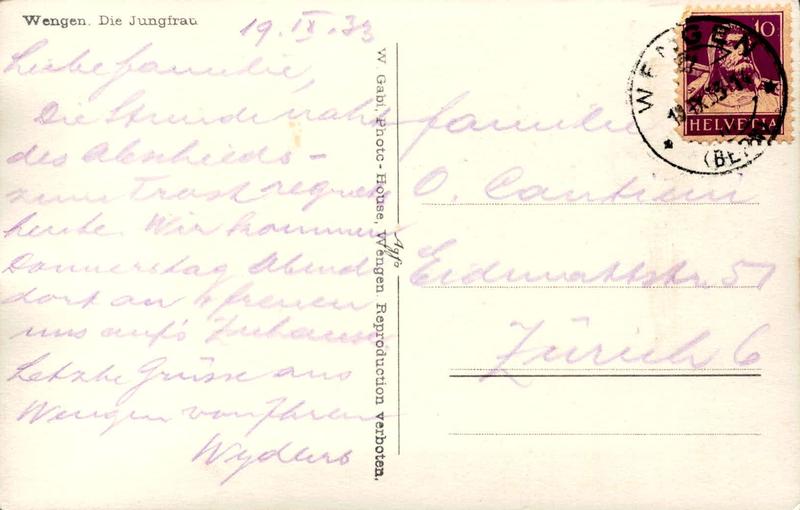 Wengen. Die Jungfrau
19. IX. 33
Liebe Familie,
Die Stunde naht
des Abschieds -
zum Trost regnets
heute. Wir kommen
Donnerstag Abend
dort an & freuen
uns auf's Zuhause
Letzte Grüsse aus
Wengen von Ihren
Wyders
W. Gabi, Photo-House, Wengen. Reproduction verboten.
Agfa
WENGEN
(BERN)
10
HELVETIA
Familie
O.
Eidmattstr. 51
Zürich 6